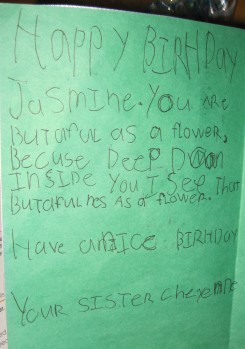 HAPPY BIRHDAY
JaSMINe. YOU ARe
BUTaFUL aS a FLOWeR,
BeCUSe DeeP DOWN
INSIDe YOU I See THaT
BUTaFULNeS AS a FLOWeR.
Have a NICe BIRHDAY
YOUR SISTeR CheyeNNe